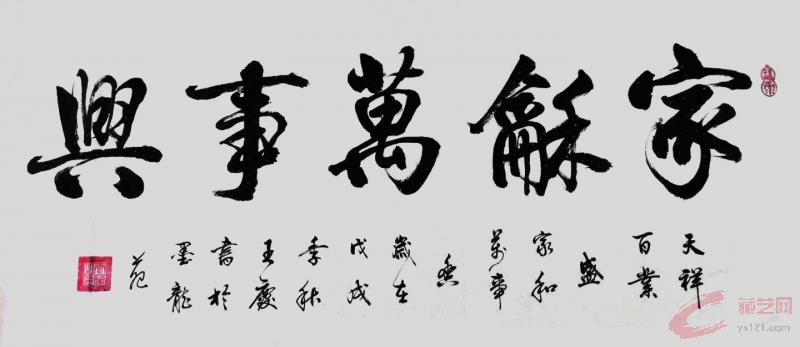 家龢萬事興
天祥
百業
盛
家和
萬事
興
歲在
戊戌
季秋
王慶
書於
墨龍
苑
藏艺网
ys121.com